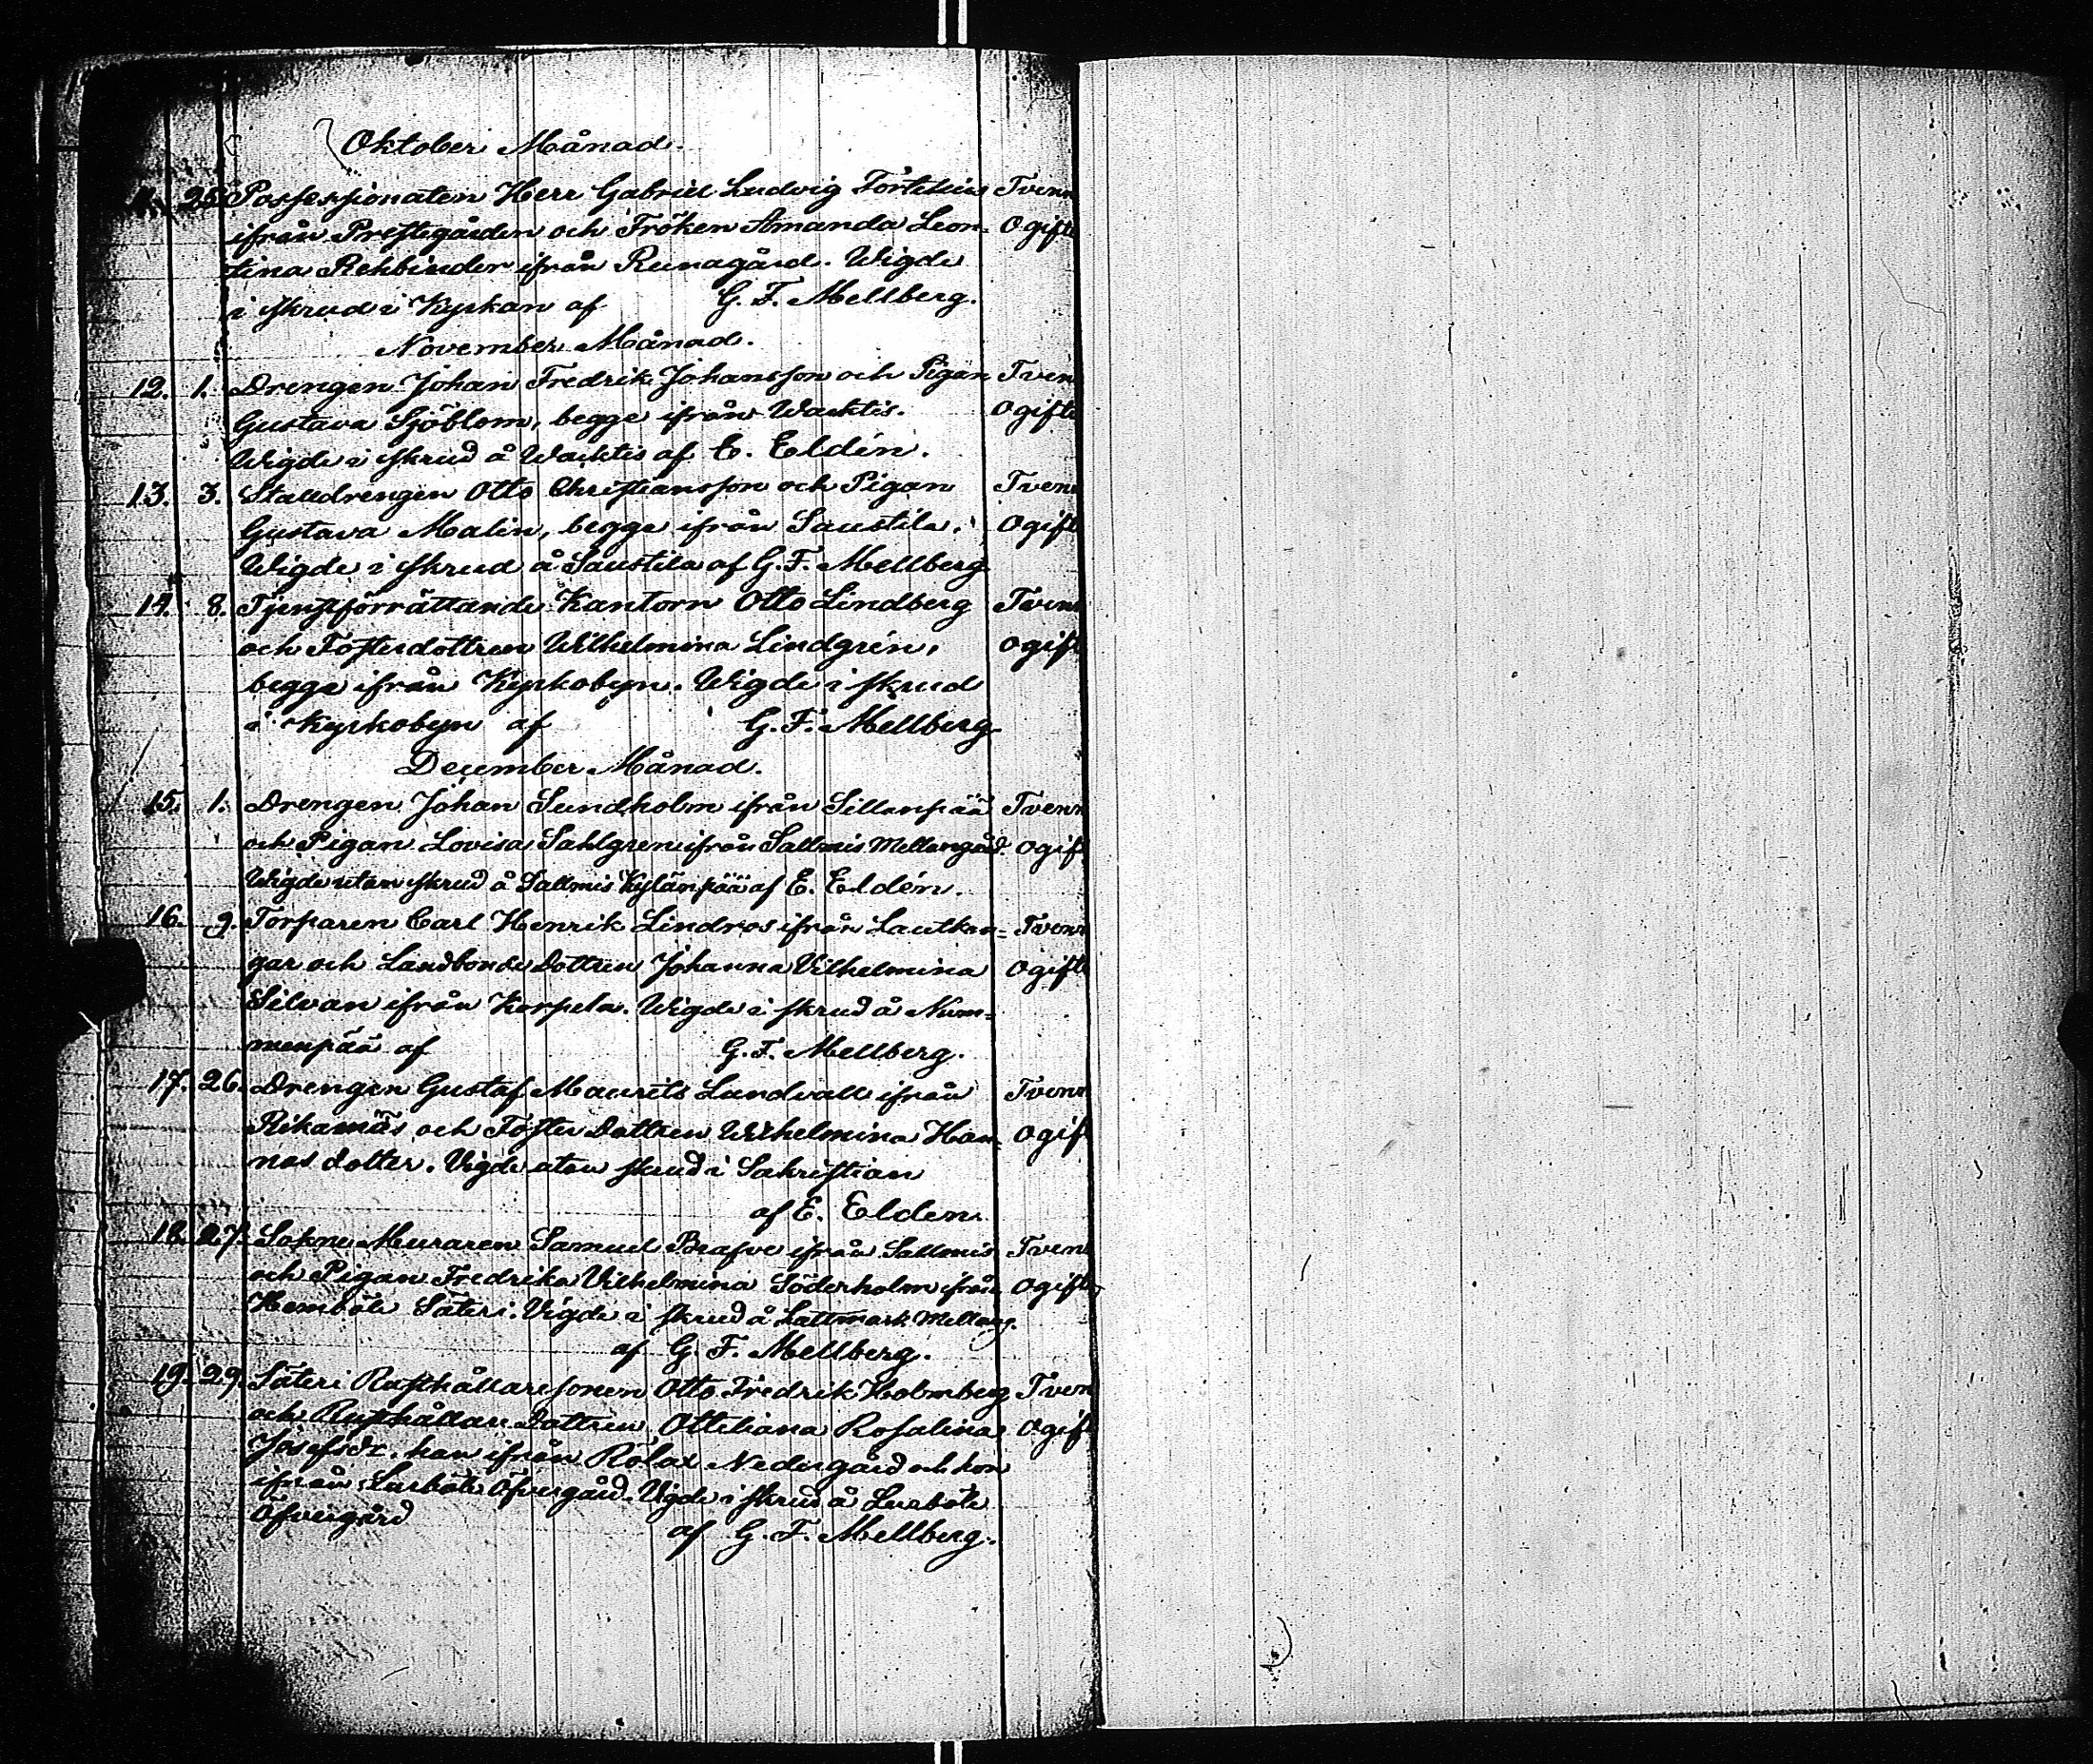 Oktober Månad.
11. 28. Possessionaten Herr Gabriel Ludwig Törtelius Tvenn
ifrån Prestegården och Fröken Amanda Leon= Ogifte
tina Rehbinder ifrån Runagård. Wigde
i skrud i Kyrkan af G. F. Mellberg.
November Månad.
12. 1. Drengen Johan Fredrik Johansson och Pigan Tven
Gustava Sjöblom, begge ifrån Wacktis. Ogifte
Wigde i skrud å Wacktis af E. Eldén.
13. 3. Stalldrengen Otto Christiansson och Pigan Tven
Gustava Malin, begge ifrån Saustila. Ogift
Wigde i skrud å Saustila af G. F. Mellberg
14. 8. Tjenstförrättande Kantorn Otto Lindberg Tven
och Fosterdottren Wilhelmina Lindgrén, Ogift
begge ifrån Kyrkobyn. Wigde i skrud
i Kyrkobyn af G. F. Mellberg.
December Månad.
15. 1. Drengen Johan Sundholm ifrån Sillanpää Tvenn
och Pigan Lovisa Sahlgren ifrån Sallmis Mellangård. Ogif
Wigde utan skrud å Sallmis Kylänpää af E. Eldén.
16. 9. Torparen Carl Henrik Lindros ifrån Lautkan= Tvenn
gar och Landbonde Dottren Johanna Vilhelmina Ogifte
Silvan ifrån Korpela. Wigde i skrud å Num=
menpää af G. F. Mellberg.
17. 26. Drengen Gustaf Maurits Landvall ifrån Tvenn
Rikanäs och Foster Dottren Wilhelmina Han= Ogif
nas dotter. Vigde utan skrud i Sakristian
af E. Elden.
18. 27. Sokne Muraren Samuel Brafve ifrån Sallmis Tven
och Pigan Fredrika Vilhelmina Söderholm ifrån Ogifte
Hemböle Säteri. Vigde i skrud å Lattmark Mellang.
af G. F. Mellberg.
19. 29. Säteri Rusthållaresonen Otto Fredrik Holmberg Tven
och Rusthållare Dottren Ottiliana Rosalina Ogif
Josefsdr. han ifrån Rölax Nedergård och hon
ifrån Larböle Öfvergård. Vigde i skrud å Larböle
Öfvergård
af G. F. Mellberg.